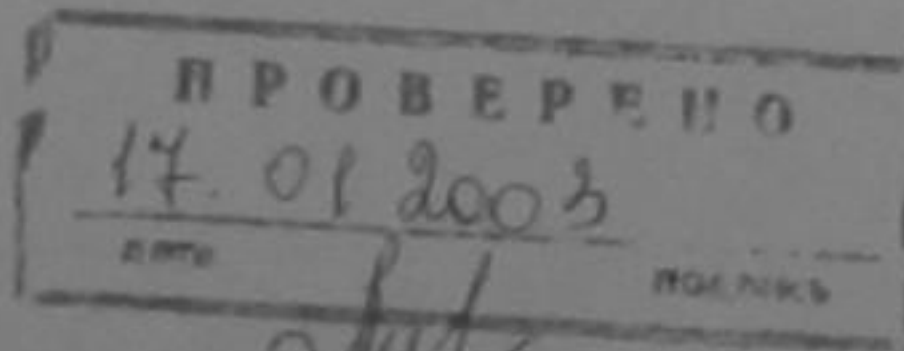 ПРОВЕРЕНО
17. 01 2003
дата подпись